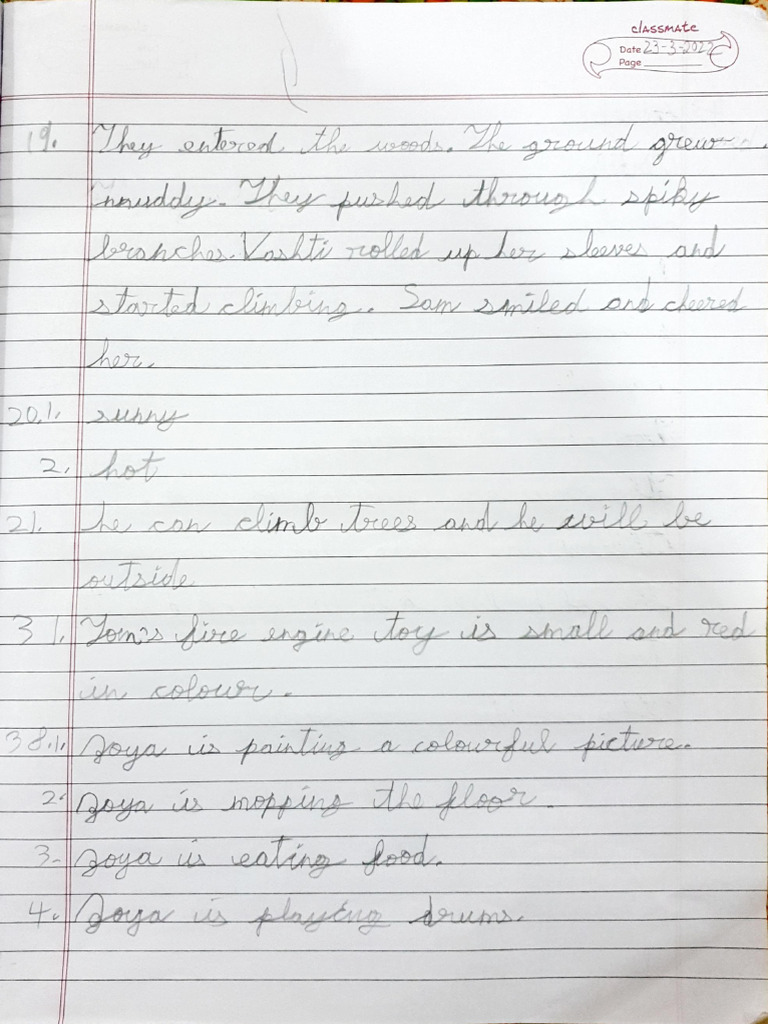 classmate
Date 23-3-2022
Page
19. They entered the woods. The ground grew
muddy. They pushed through spiky
branches. Vashti rolled up her sleeves and
started climbing.. Sam smiled and cheered
her.
20.1. sunny
2. hot
21. he can climb trees and he will be
outside
31. Tom's fire engine toy is small and red
in colour.
38.1. Zoya is painting a colourful picture.
2. Zoya is mopping the floor.
3- Zoya is eating food.
4. Zoya is playing drums.